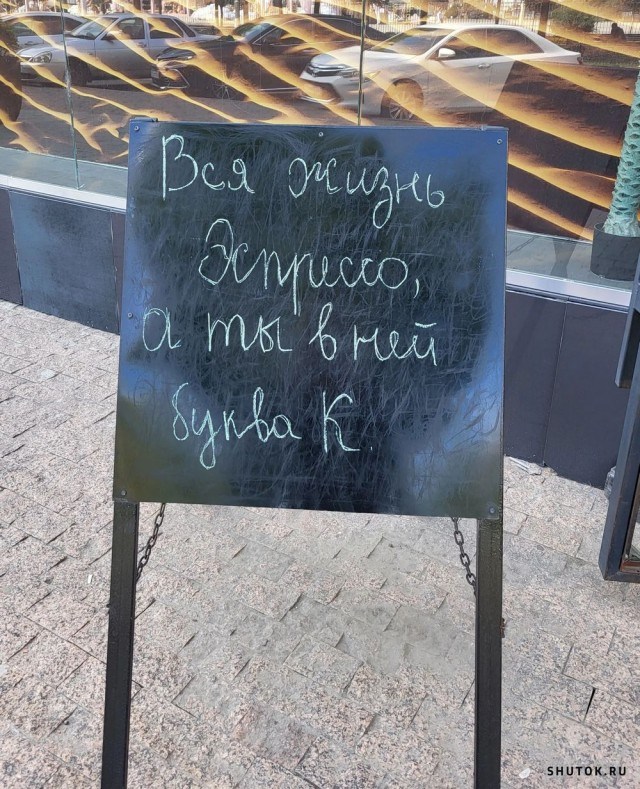 Вся жизнь
Эспрессо,
а ты в ней
буква К.
SHUTOK.RU